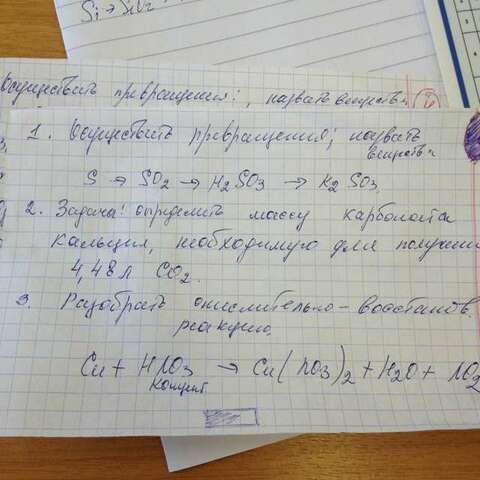 Si → SiO₂
Осуществить превращения:, назвать вещества
1. Осуществить превращения; назвать
вещества
S → SO₂ → H₂SO₃ → K₂SO₃
2. Задача: определить массу карбоната
кальция, необходимую для получени
4,48 л CO₂.
3. Разобрать окислительно-восстанов.
реакцию.
Cu + HNO₃ → Cu(NO₃)₂ + H₂O + NO₂
концент.